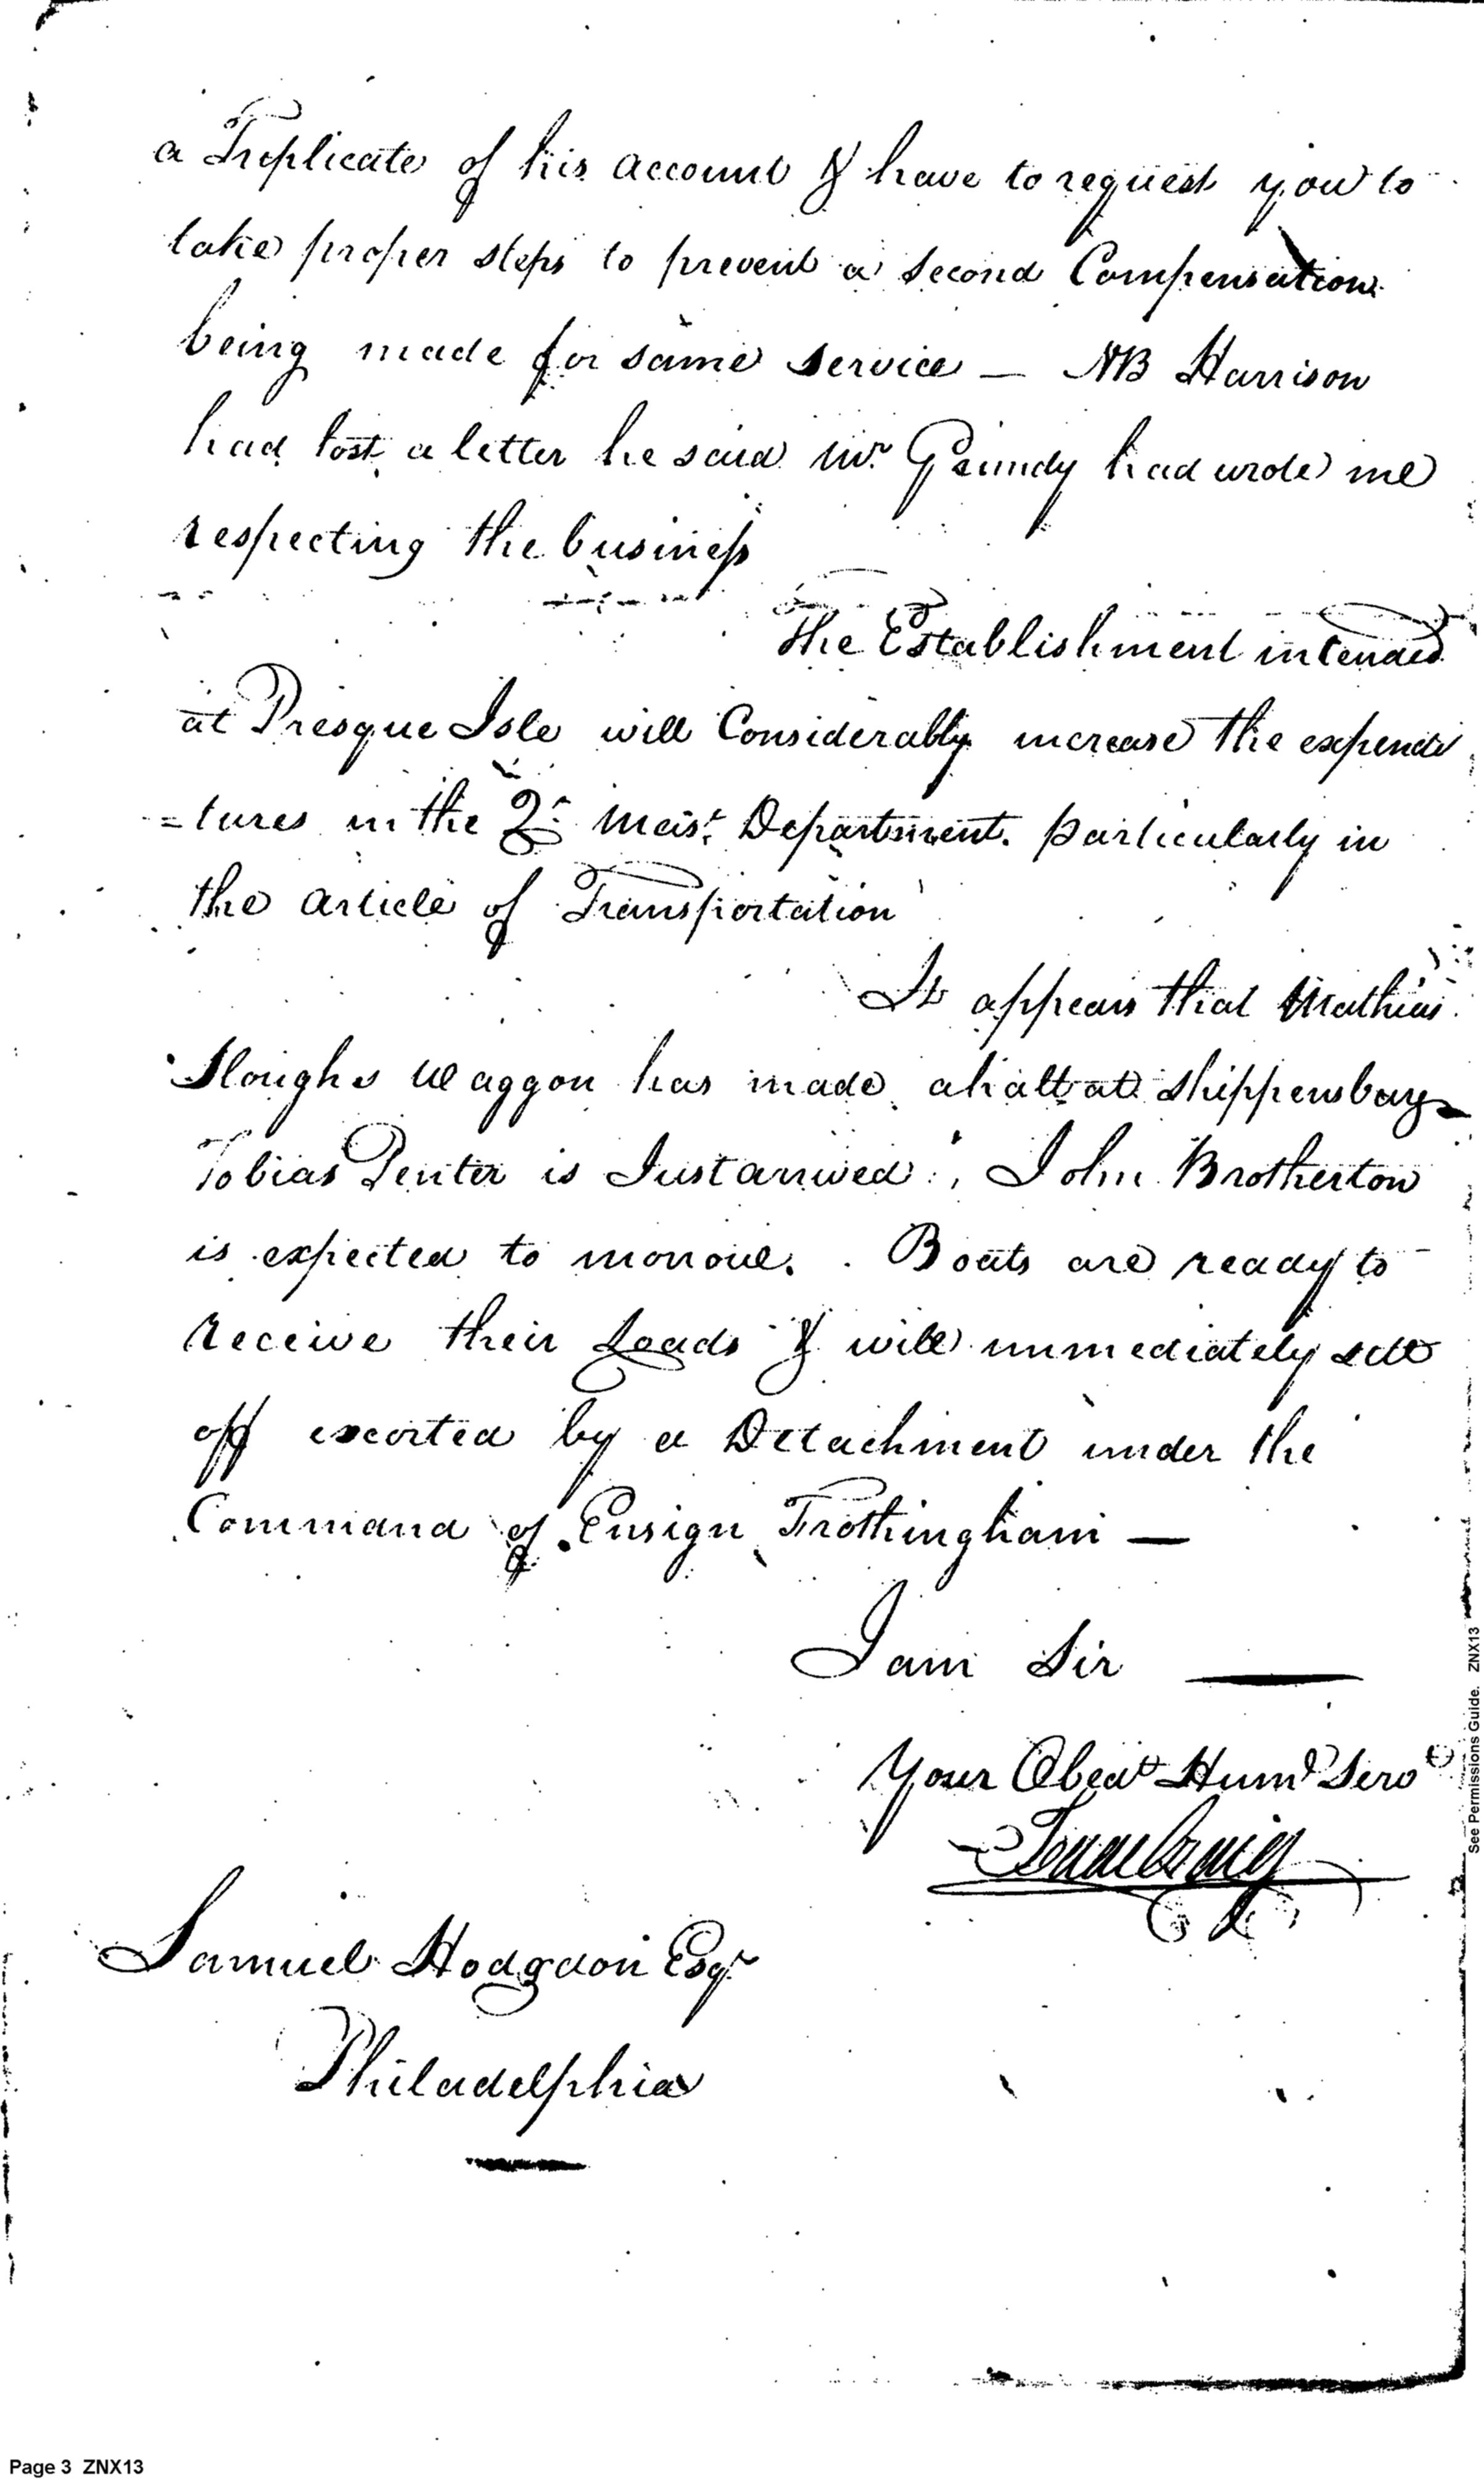 a Triplicate of his account & have to request you to
take proper steps to prevent a second Compensation
being made for same service — NB Harrison
had lost a letter he said Mr. Grundy had wrote me
respecting the business
The Establishment intended
at Presque Isle will Considerably increase the expendi
=tures in the Qr. Mast. Department. particularly in
the article of Transportation
It appears that Mathias
Sloughs Waggon has made a halt at Shippensburg
Tobias Penter is Just arrived, John Brotherton
is expected to morrow. Boats are ready to
receive their Loads & will immediately sett
off escorted by a Detachment under the
Command of Ensign Frothingham —
I am Sir —
Your Obedt Huml Servt
Isaac Craig
Samuel Hodgdon Esqr
Philadelphia
See Permissions Guide. ZNX13
Page 3 ZNX13